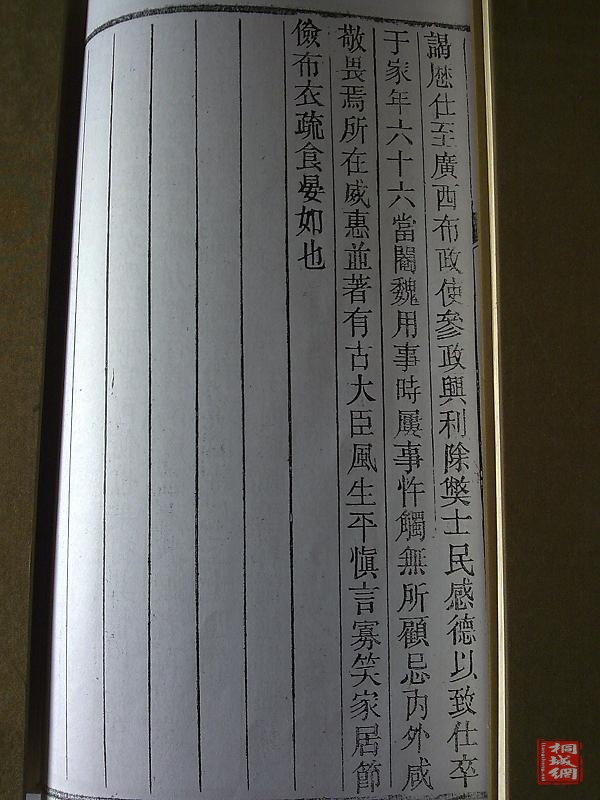 謁歴仕至廣西布政使參政興利除獘士民感德以致仕卒
于家年六十六當閹魏用事時屢事忤觸無所顧忌内外咸
敬畏焉所在威惠並著有古大臣風生平慎言寡笑家居節
儉布衣疏食晏如也
桐城網